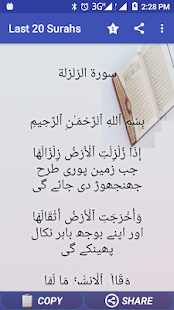 3G 2:28 PM
Last 20 Surahs
سورة الزلزلة
بِسْمِ ٱللَّهِ ٱلرَّحْمَٰنِ ٱلرَّحِيمِ
إِذَا زُلْزِلَتِ ٱلْأَرْضُ زِلْزَالَهَا
جب زمین پوری طرح
جھنجھوڑ دی جائے گی
وَأَخْرَجَتِ ٱلْأَرْضُ أَثْقَالَهَا
اور اپنے بوجھ باہر نکال
پھینکے گی
وَقَالَ ٱلْإِنسَٰنُ مَا لَهَا
COPY
SHARE